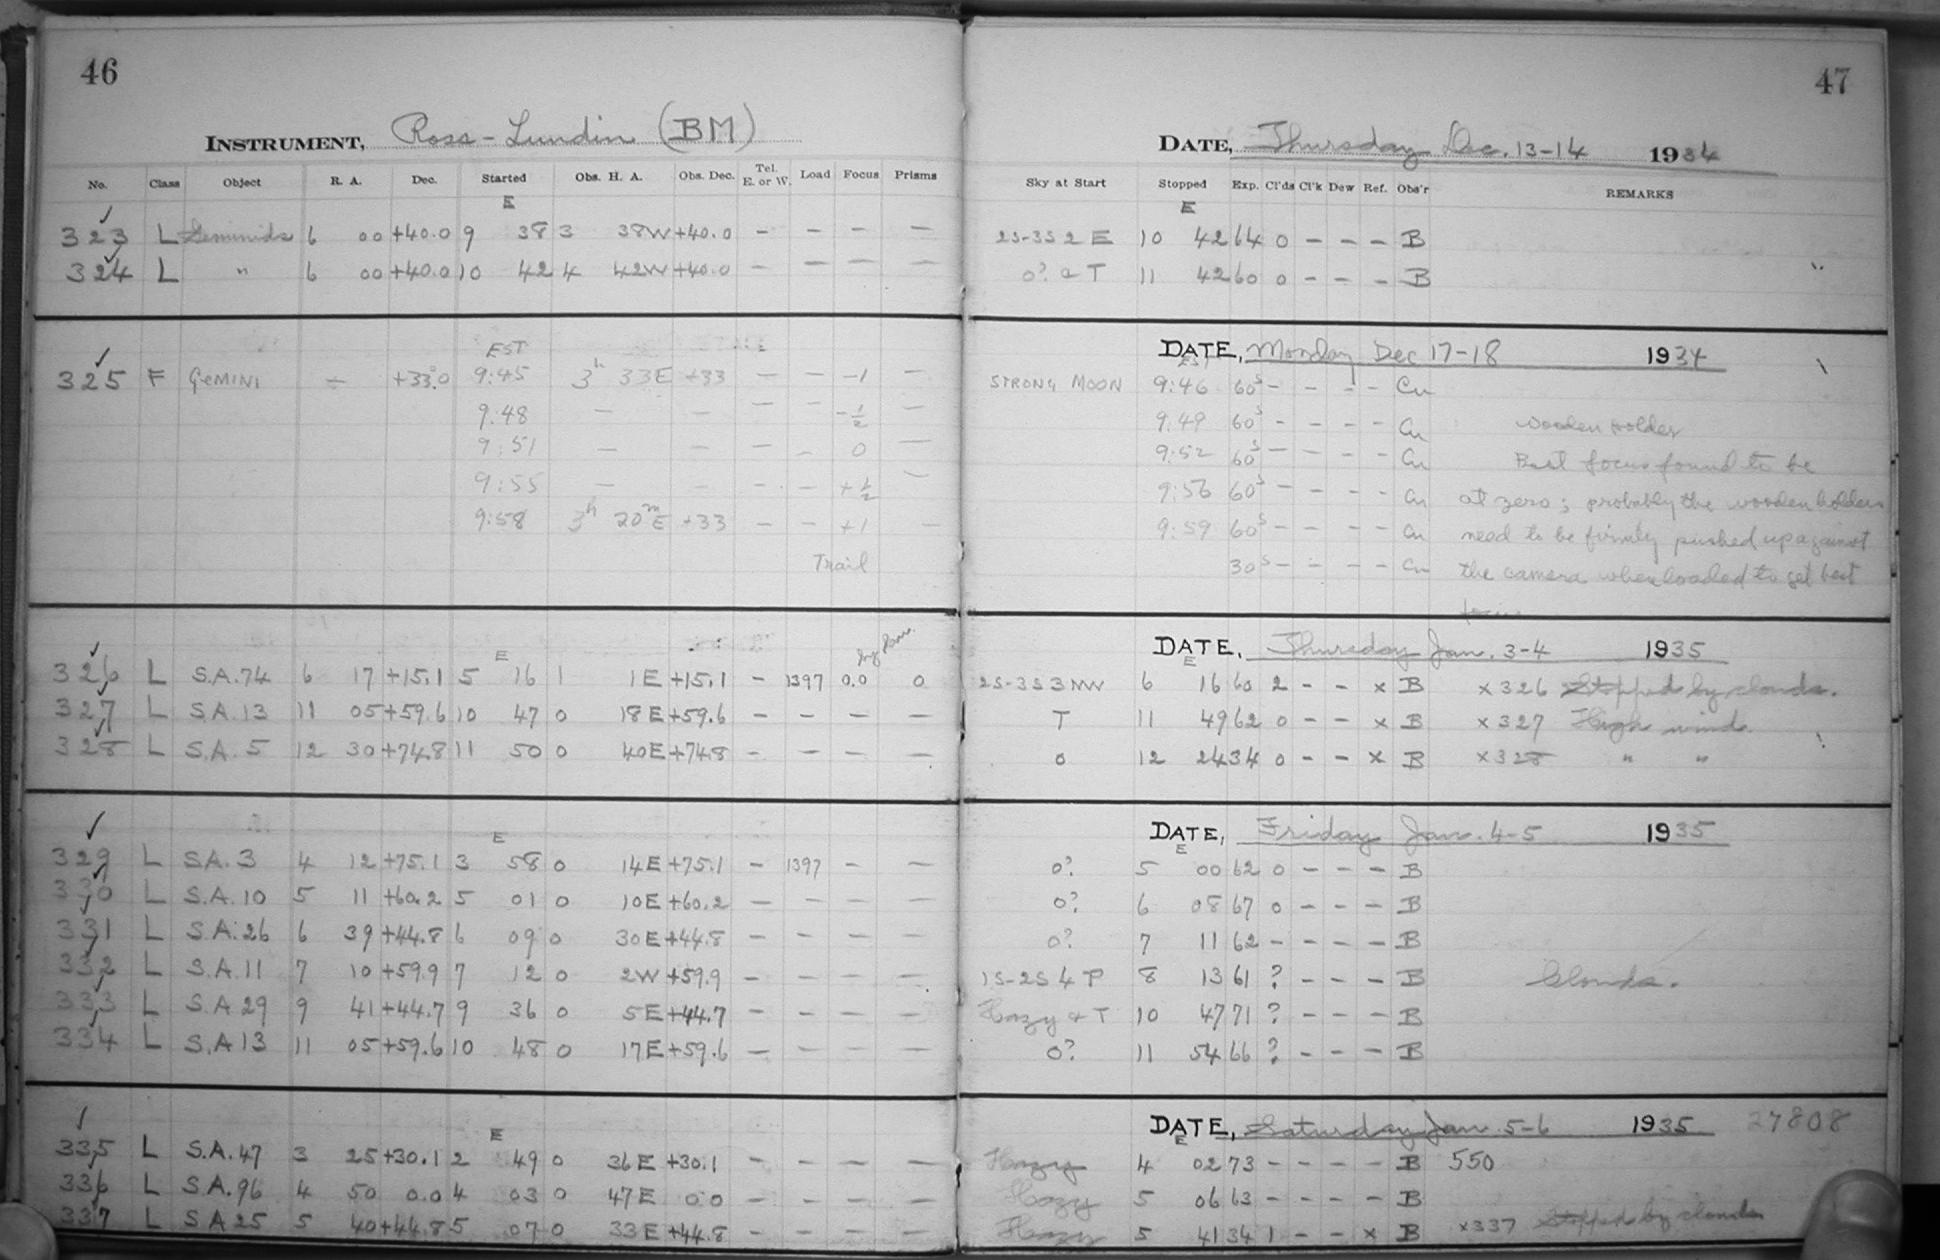 46
INSTRUMENT, Ross-Lundin (BM)
No. Class Object R. A. Dec. Started Obs. H. A. Obs. Dec. Tel. E. or W. Load Focus Prisms
E
323 L Geminids 6 00 +40.0 9 38 3 38W +40.0 - - - -
324 L " 6 00 +40.0 10 42 4 42W +40.0 - - - -
EST
325 F GEMINI ÷ +33°.0 9:45 3h 33E +33 - - -1 -
9:48 - - - - -1/2 -
9:51 - - - - 0 -
9:55 - - - - +1/2 -
9:58 3h 20mE +33 - - +1 -
Trail
E
326 L S.A.74 6 17 +15.1 5 16 1 1E +15.1 - 1397 0.0 0
327 L S.A.13 11 05 +59.6 10 47 0 18E +59.6 - - - -
328 L S.A. 5 12 30 +74.8 11 50 0 40E +74.8 - - - -
E
329 L S.A. 3 4 12 +75.1 3 58 0 14E +75.1 - 1397 - -
330 L S.A. 10 5 11 +60.2 5 01 0 10E +60.2 - - - -
331 L S.A. 26 6 39 +44.8 6 09 0 30E +44.8 - - - -
332 L S.A. 11 7 10 +59.9 7 12 0 2W +59.9 - - - -
333 L S.A 29 9 41 +44.7 9 36 0 5E +44.7 - - - -
334 L S.A 13 11 05 +59.6 10 48 0 17E +59.6 - - - -
E
335 L S.A. 47 3 25 +30.1 2 49 0 36E +30.1 - - - -
336 L S.A. 96 4 50 0.0 4 03 0 47E 0.0 - - - -
337 L S A 25 5 40 +44.8 5 07 0 33E +44.8 - - - -
47
DATE, Thursday Dec. 13-14 1934
Sky at Start Stopped Exp. Cl'ds Cl'k Dew Ref. Obs'r REMARKS
E
2S-3S 2 E 10 42 64 0 - - - B
0? & T 11 42 60 0 - - - B
DATE, Monday Dec 17-18 1934
EST
STRONG MOON 9:46 60s - - - - Cn
9:49 60s - - - - Cn Wooden holder
9:52 60s - - - - Cn Best focus found to be
9:56 60s - - - - Cn at zero; probably the wooden holders
9:59 60s - - - - Cn need to be firmly pushed up against
30s - - - - Cn the camera when loaded to get best
focus
DATE, Thursday Jan. 3-4 1935
E
2S-3S 3 NW 6 16 60 2 - - x B x326 Stopped by clouds.
T 11 49 62 0 - - x B x327 High wind
0 12 24 34 0 - - x B x328 " "
DATE, Friday Jan. 4-5 1935
E
0? 5 00 62 0 - - - B
0? 6 08 67 0 - - - B
0? 7 11 62 - - - - B
1S-2S 4 P 8 13 61 ? - - - B Clouds.
Hazy & T 10 47 71 ? - - - B
0? 11 54 66 ? - - - B
DATE, Saturday Jan 5-6 1935 27808
E
Hazy 4 02 73 - - - - B 550
Hazy 5 06 63 - - - - B
Hazy 5 41 34 1 - - x B x337 Stopped by clouds